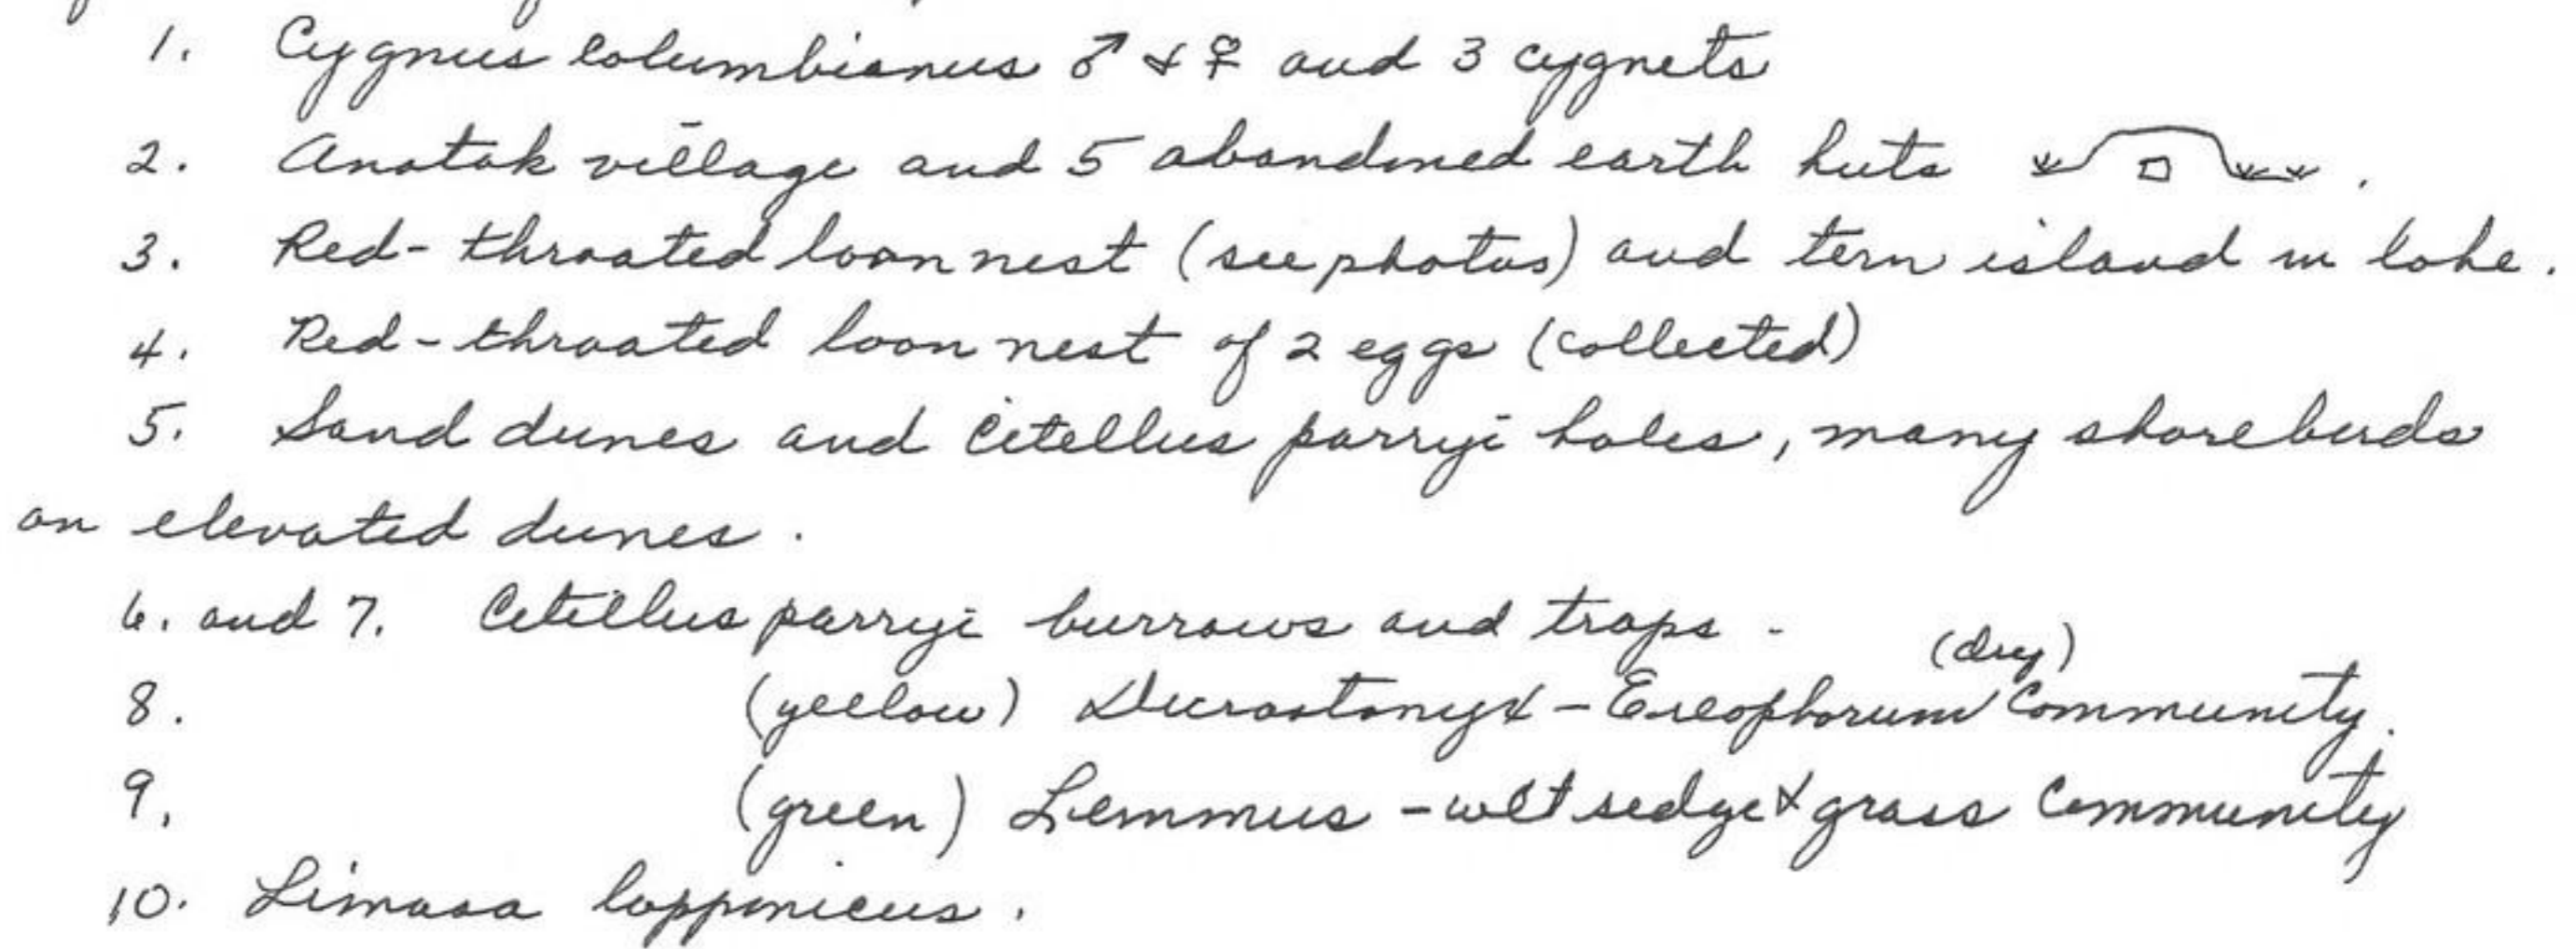 1. Cygnus columbianus ♂ & ♀ and 3 cygnets
2. Anatak village and 5 abandoned earth huts .
3. Red-throated loon nest (see photos) and tern island in lake.
4. Red-throated loon nest of 2 eggs (collected)
5. Sand dunes and Citellus parryi holes, many shorebirds
on elevated dunes.
6. and 7. Citellus parryi burrows and traps -
(dry)
8. (yellow) Dicrostonyx - Eriophorum Community.
9. (green) Lemmus - wet sedge & grass Community
10. Limosa lapponicus.